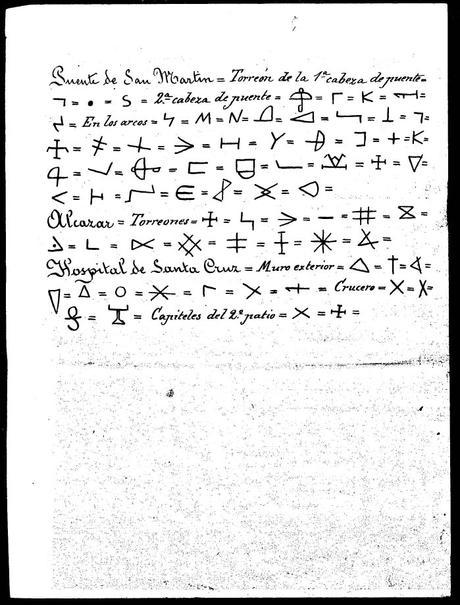 Puente de San Martin = Torreón de la 1ª cabeza de puente =
S = 2ª cabeza de puente = K =
En los arcos = M = N =
Y = K
Alcazar = Torreones =
Hospital de Santa Cruz = Muro exterior =
Crucero = X =
Capiteles del 2º patio = X =